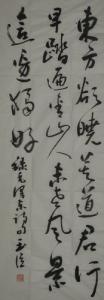 東方欲曉莫道君行
早踏遍青山人未老風景
這邊獨好
錄毛澤東詩句